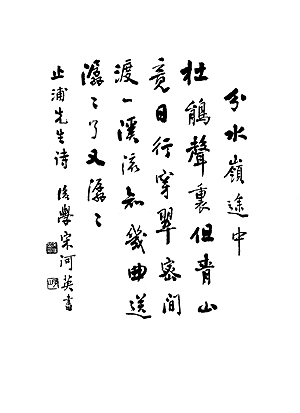 分水嶺途中
杜鵑聲裏但青山
竟日行穿翠密間
渡一溪流知幾曲送
潺〻了又潺〻
止浦先生詩 後學宋河英書